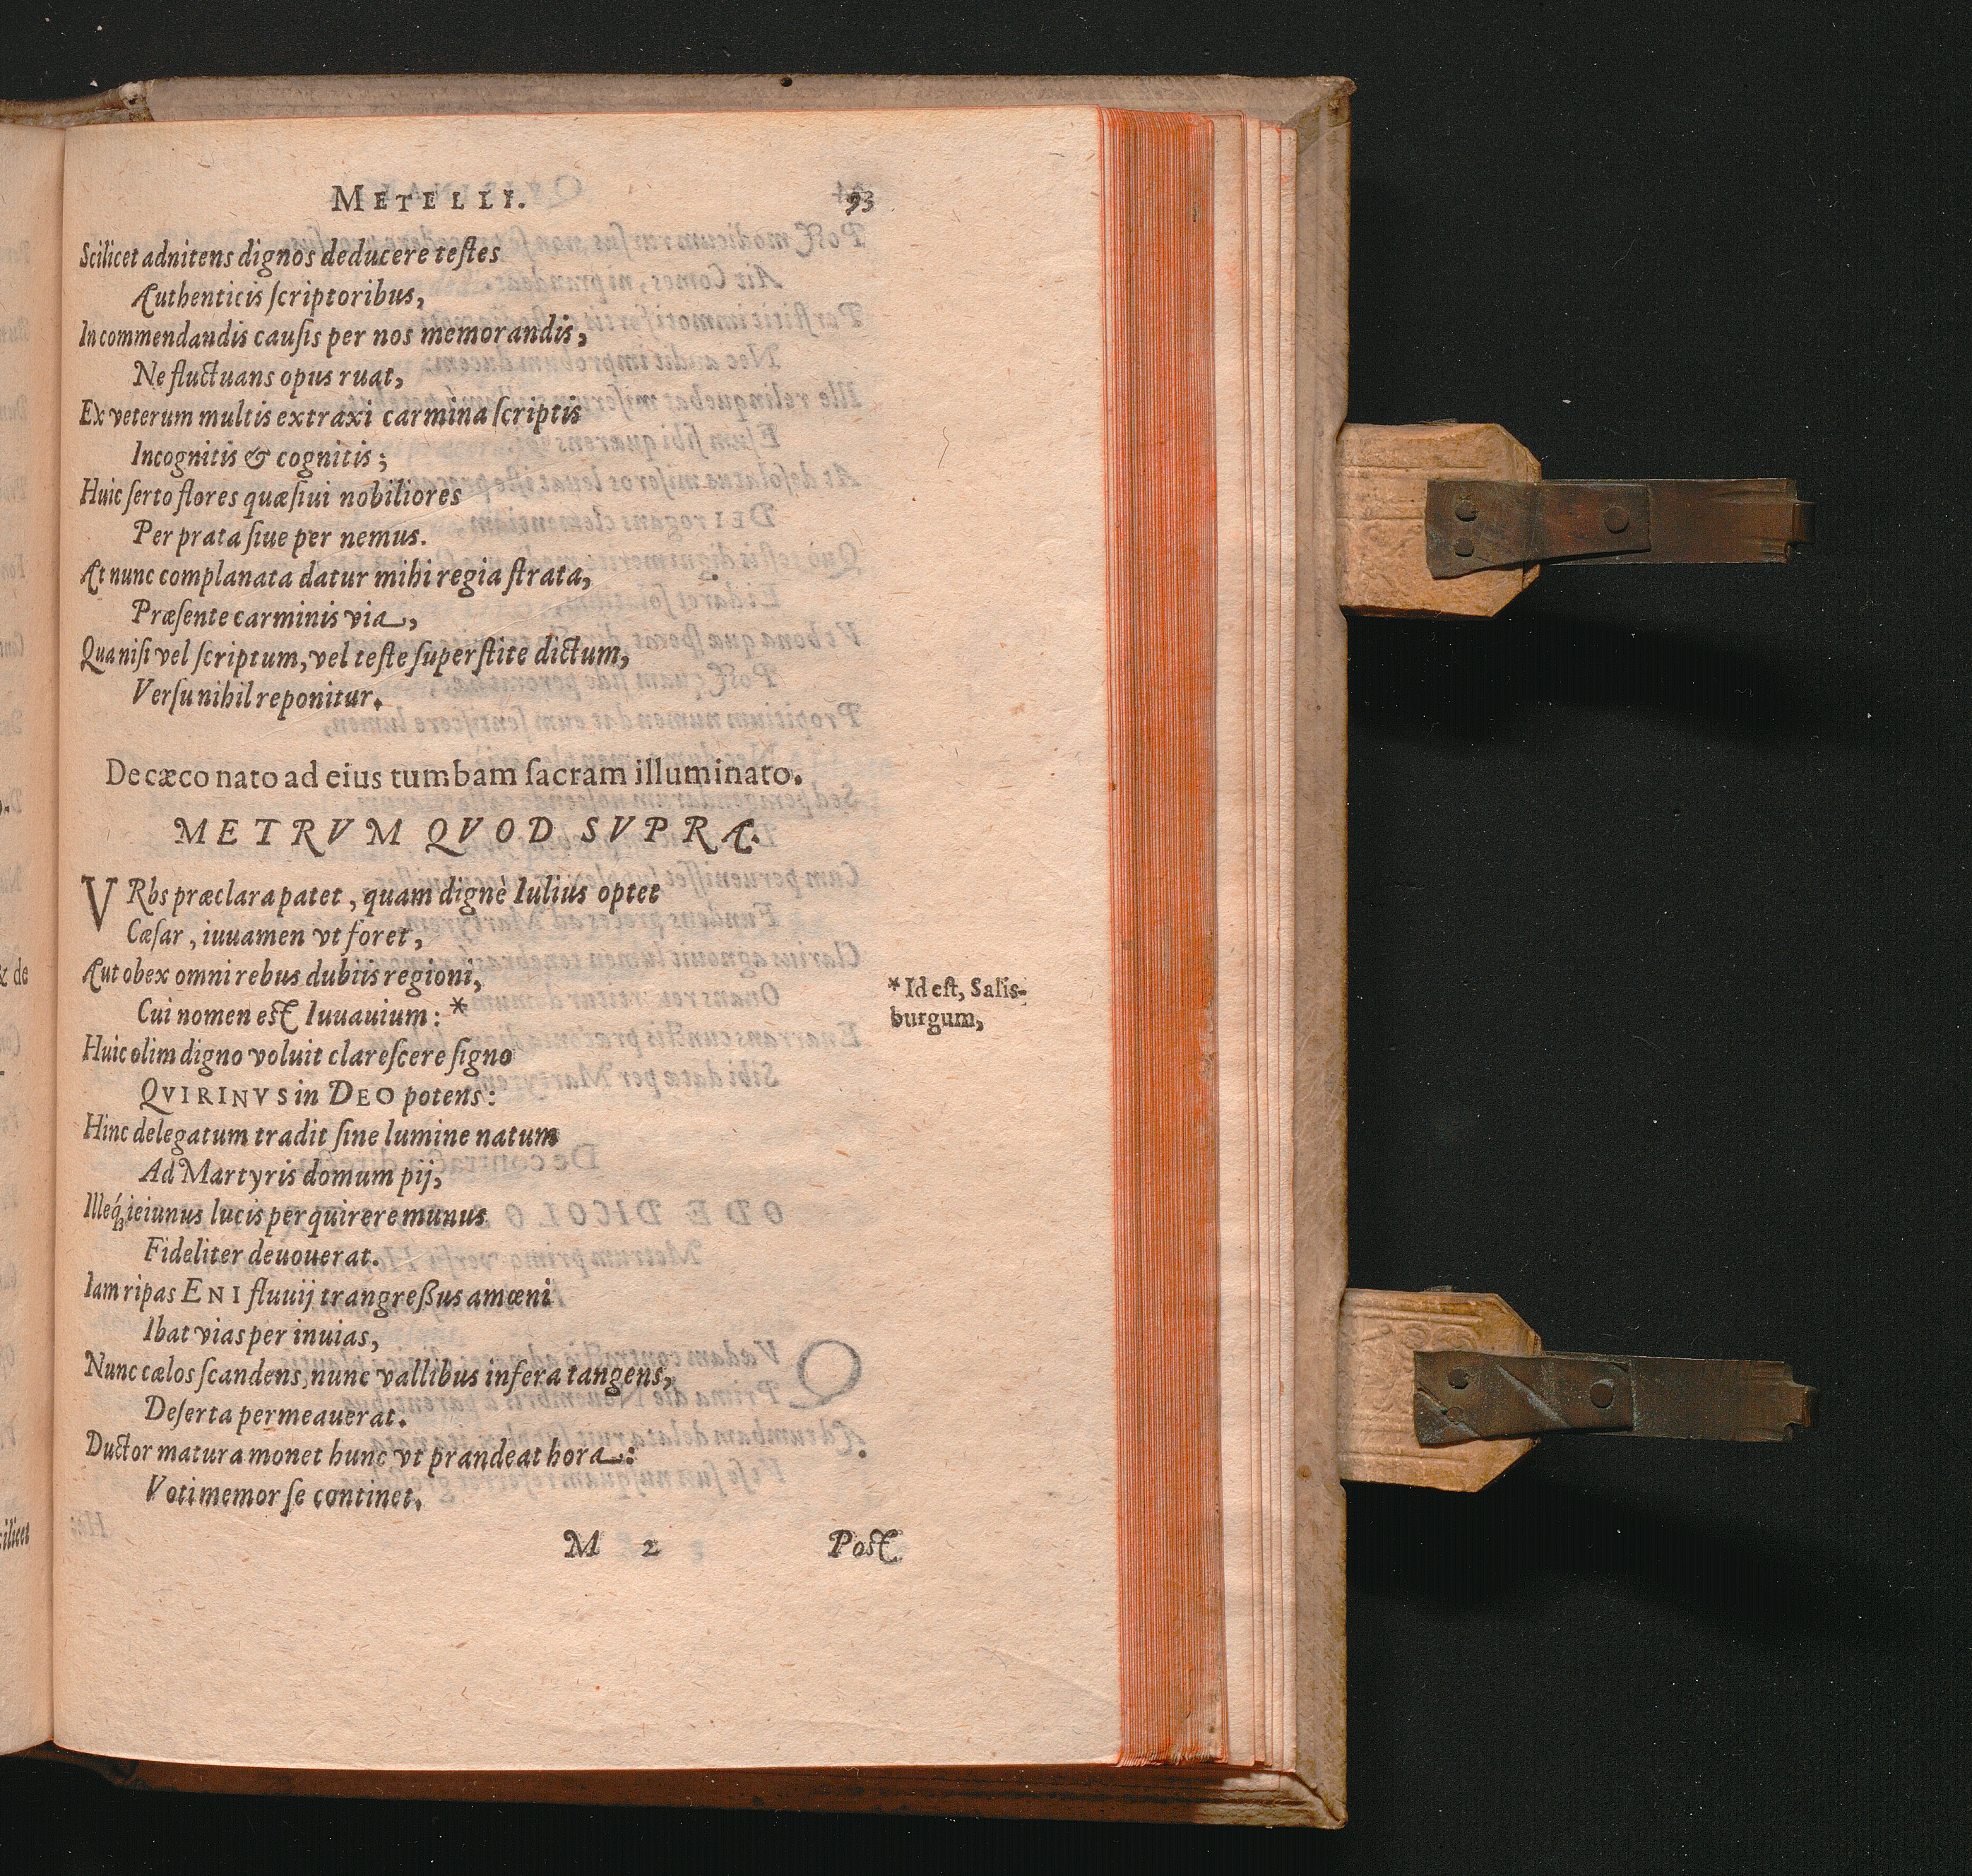 METELLI. 93
Scilicet adnitens dignos deducere teſtes
Authenticis ſcriptoribus,
In commendandis cauſis per nos memorandis,
Ne fluctuans opus ruat,
Ex veterum multis extraxi carmina ſcriptis
Incognitis & cognitis;
Huic ſerto flores quæſiui nobiliores
Per prata ſiue per nemus.
At nunc complanata datur mihi regia ſtrata,
Præſente carminis via,
Qua niſi vel ſcriptum, vel teſte ſuperſtite dictum,
Verſu nihil reponitur.
De cæco nato ad eius tumbam ſacram illuminato.
METRVM QVOD SVPRA.
VRbs præclara patet, quam dignè Iulius optet
Cæſar, iuuamen vt foret,
Aut obex omni rebus dubiis regioni,
Cui nomen eſt Iuuauium: *
* Id eſt, Salis-
burgum,
Huic olim digno voluit clareſcere ſigno
QVIRINVS in DEO potens:
Hinc delegatum tradit ſine lumine natum
Ad Martyris domum pij,
Illeq́; ieiunus lucis perquirere munus
Fideliter deuouerat.
Iam ripas ENI fluuij trangreßus amœni
Ibat vias per inuias,
Nunc cælos ſcandens, nunc vallibus infera tangens,
Deſerta permeauerat.
Ductor matura monet hunc vt prandeat hora:
Voti memor ſe continet,
M 2 Poſt
& de
cilicet